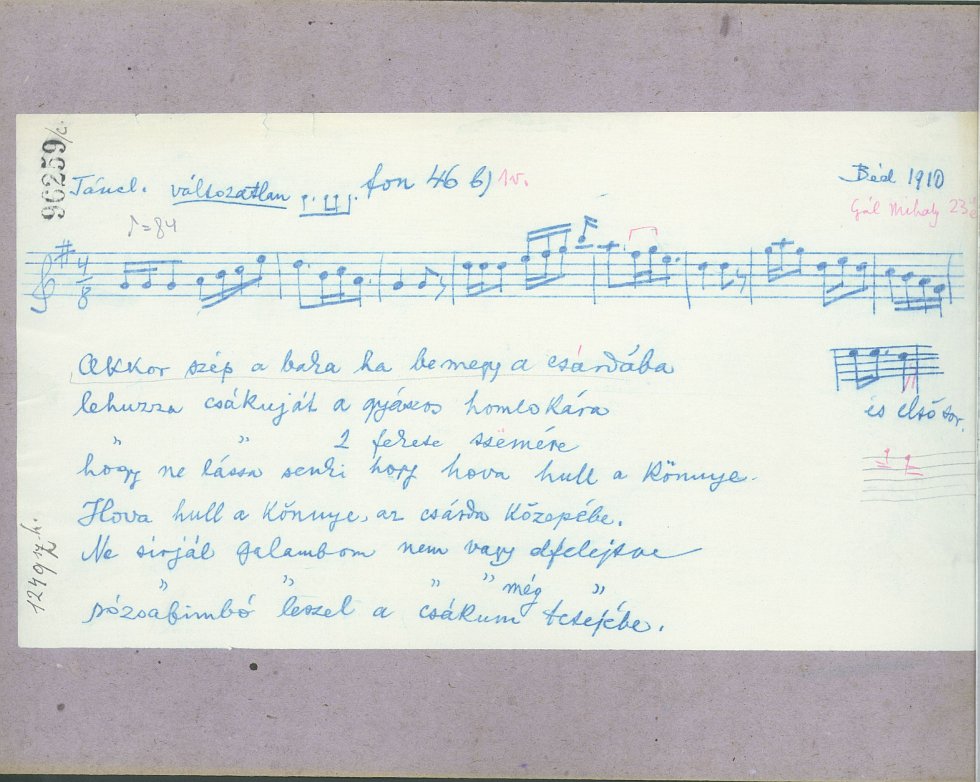 90259/c.
Táncl. változatlan fon 46 b) 1v.
Béd 1910
Gál Mihály 23
♪=84
4/8
Akkor szép a baka ha bemegy a csárdába
lehuzza csákuját a gyászos homlokára
és első sor.
" " 2 fekete szemére
hogy ne lássa senki hogy hova hull a könnye.
Hova hull a könnye, az csárda közepébe.
Ne sirjál galambom nem vagy elfelejtve
" " " " még "
rózsabimbó leszel a csákum tetejébe.